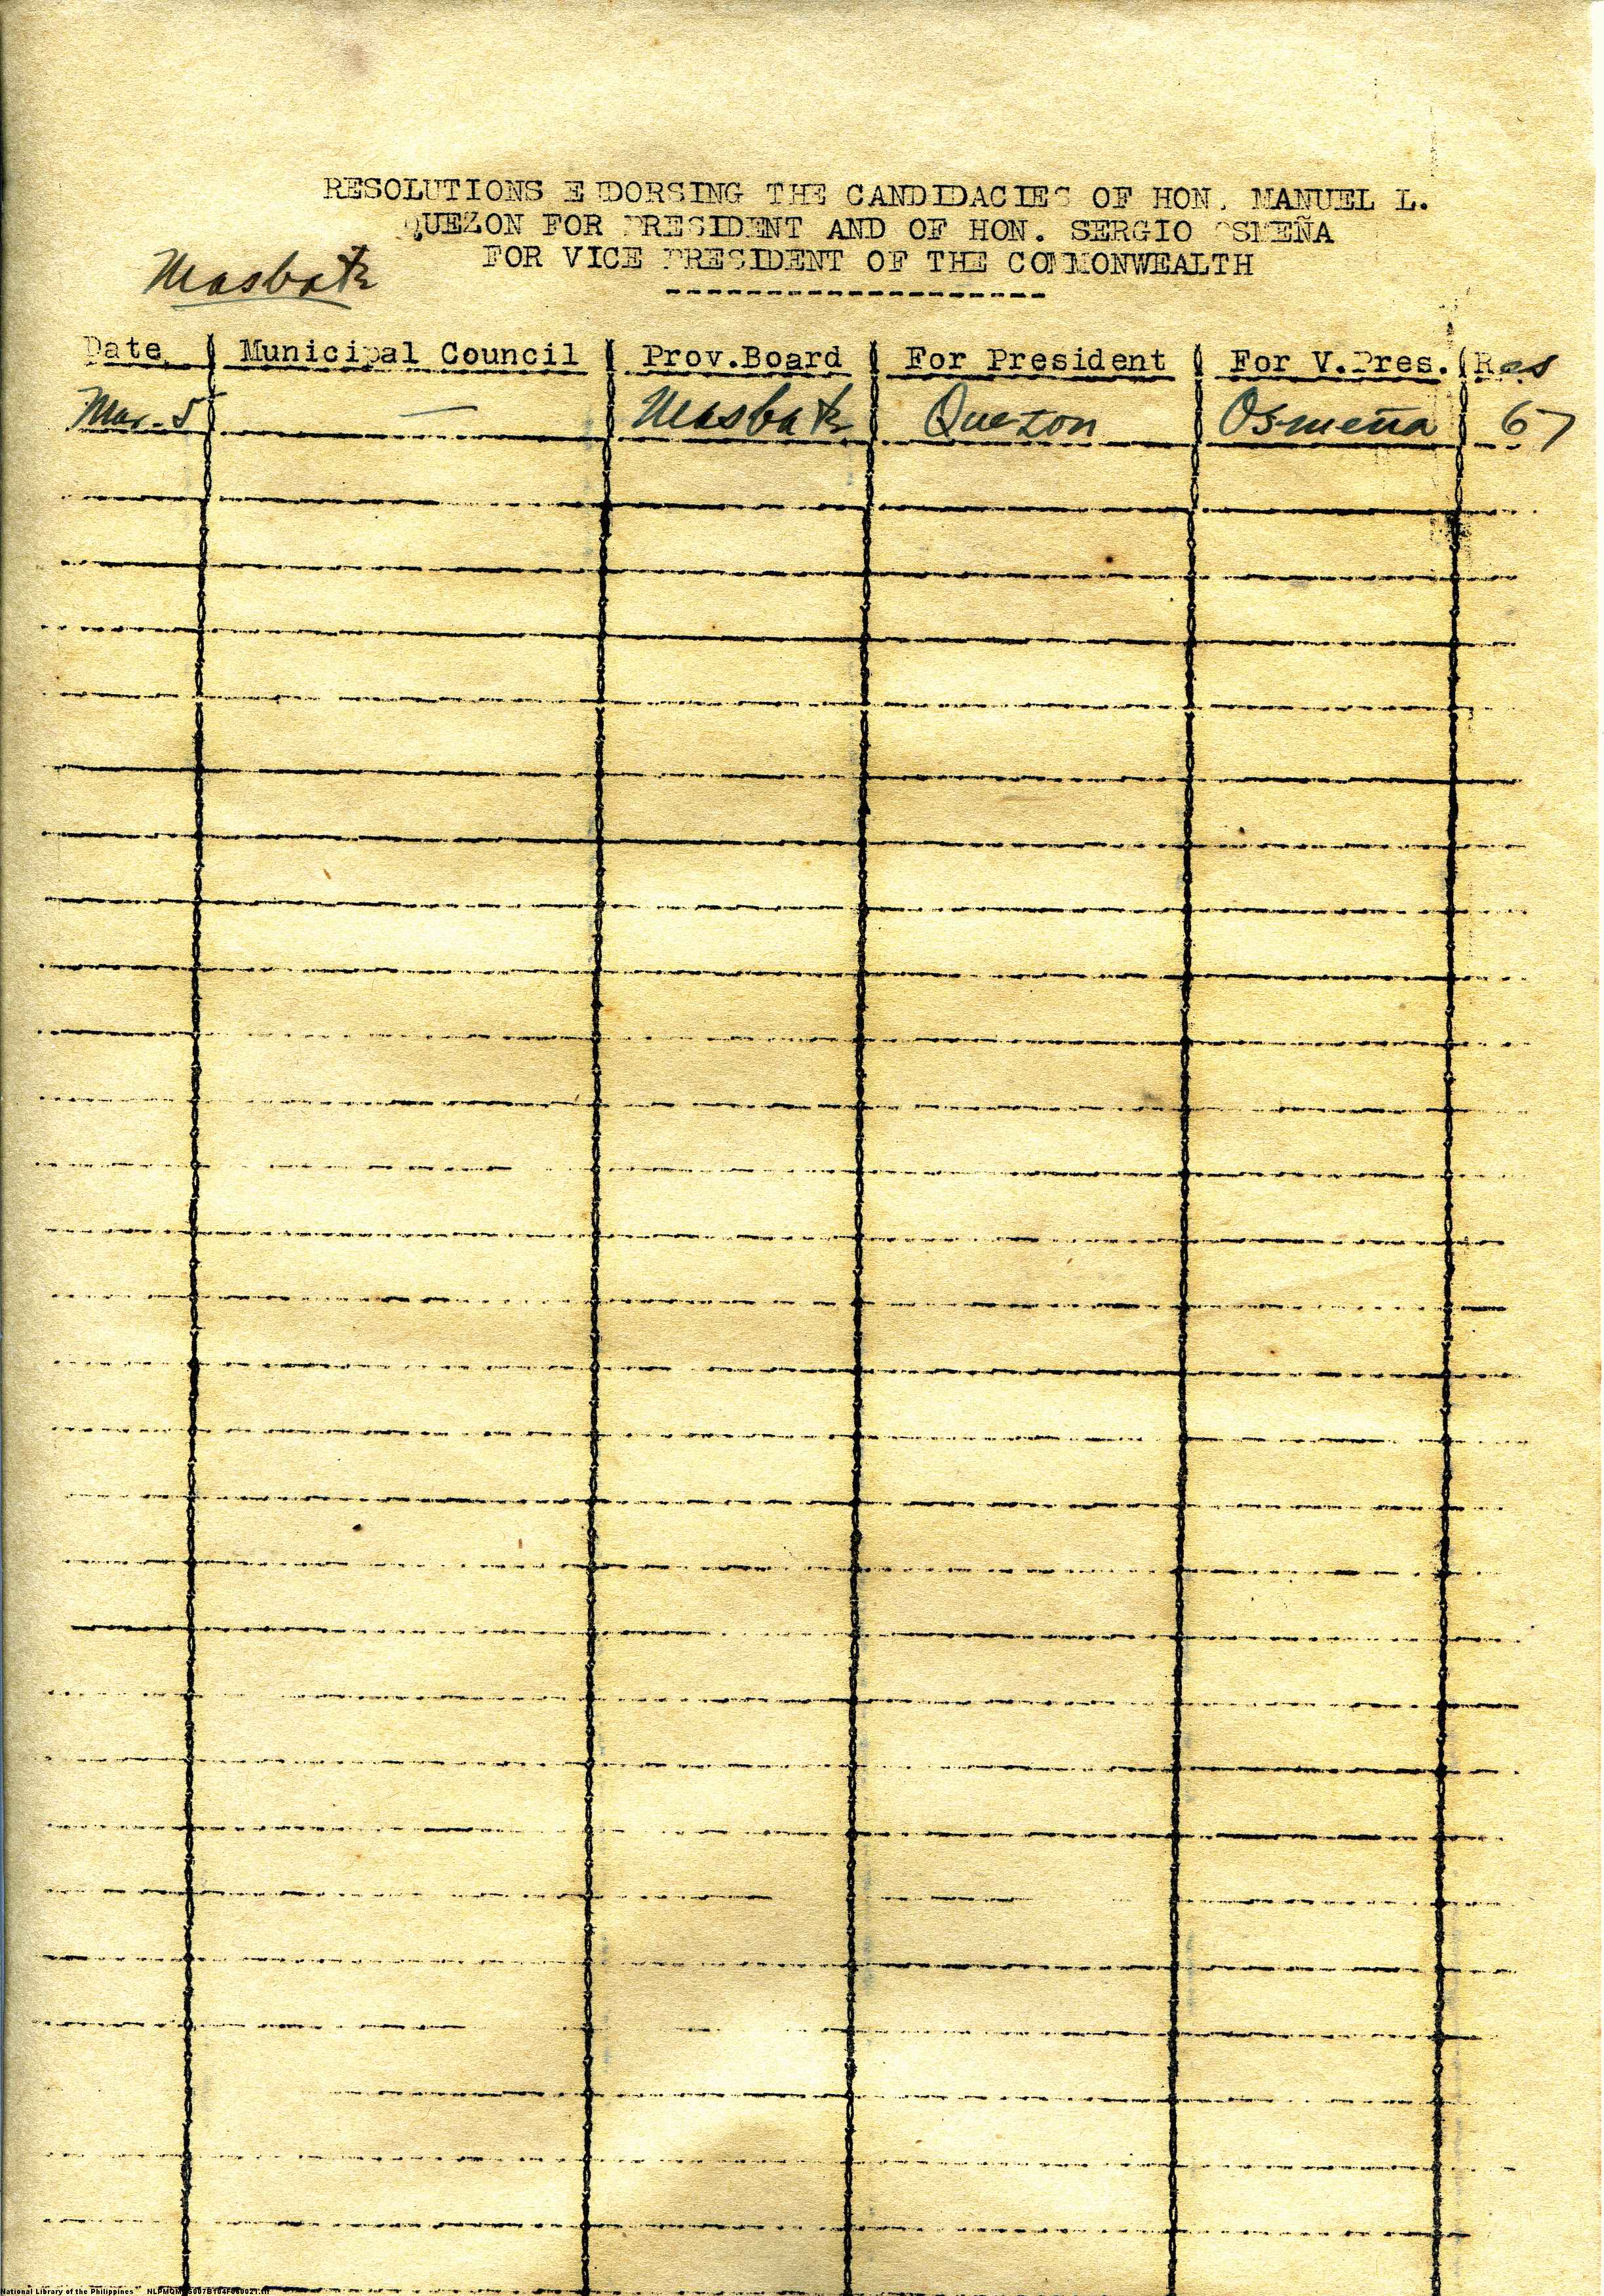 RESOLUTIONS E DORSING THE CANDIDACIES OF HON. MANUEL L.
QUEZON FOR PRESIDENT AND OF HON. SERGIO OSMEÑA
FOR VICE PRESIDENT OF THE COMMONWEALTH
Masbate
Date Municipal Council Prov.Board For President For V.Pres. Res
Mar. 5 — Masbate Quezon Osmeña 67
National Library of the Philippines